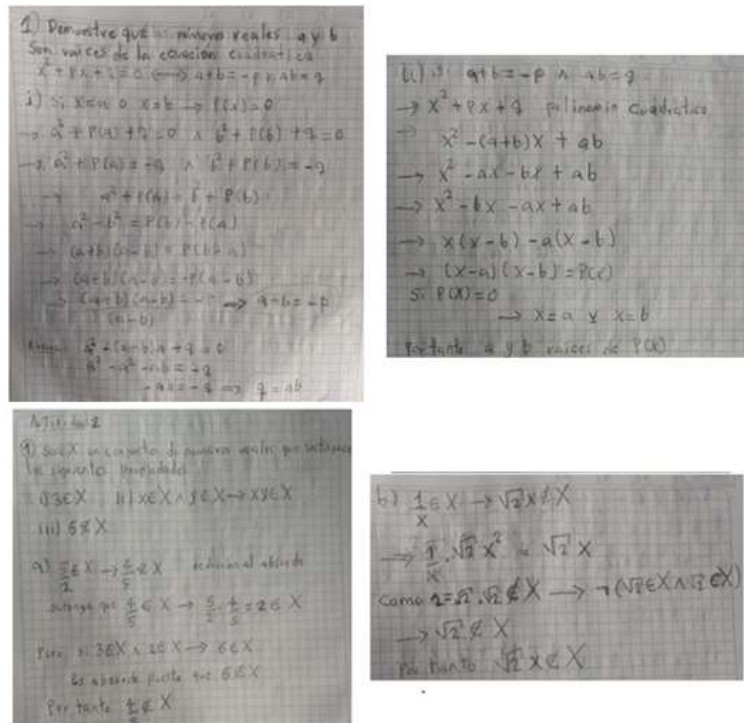 1) Demuestre que números reales a y b
Son raíces de la ecuación cuadratica
x² + px + q = 0 ⟷ a+b = -p ∧ ab = q
i) si x=a o x=b → P(x)=0
→ a² + P(a) + q = 0 ∧ b² + P(b) + q = 0
→ a² + P(a) = -q ∧ b² + P(b) = -q
→ a² + P(a) = b² + P(b)
→ a² - b² = P(b) - P(a)
→ (a+b)(a-b) = P(b-a)
→ (a+b)(a-b) = -P(a-b)
→ (a+b)(a-b) = -P → a+b = -p
(a-b)
a² - (a+b)a + q = 0
a² - a² - ab = -q
-ab = -q → q = ab
ii) si a+b = -p ∧ ab = q
→ x² + px + q polinomio cuadrático
→ x² - (a+b)x + ab
→ x² - ax - bx + ab
→ x² - bx - ax + ab
→ x(x-b) - a(x-b)
→ (x-a)(x-b) = P(x)
Si P(x)=0
→ x=a y x=b
Por tanto a y b raíces de P(x)
Actividad 2
9) Sea X un conjunto de números reales que satisface
las siguientes propiedades
i) 3∈X ii) x∈X ∧ y∈X → xy∈X
iii) 6∉X
a) 5/2 ∈ X → 4/5 ∉ X Reducción al absurdo
Suponga que 4/5 ∈ X → 5/2 · 4/5 = 2 ∈ X
Pero si 3∈X ∧ 2∈X → 6∈X
Es absurdo puesto que 6∉X
Por tanto 4/5 ∉ X
b) 1/x ∈ X → √2 x ∉ X
→ 1/x · √2 x² = √2 x
como 2 = √2 · √2 ∉ X → ¬(√2∈X ∧ √2∈X)
→ √2 ∉ X
Por tanto √2 x ∉ X